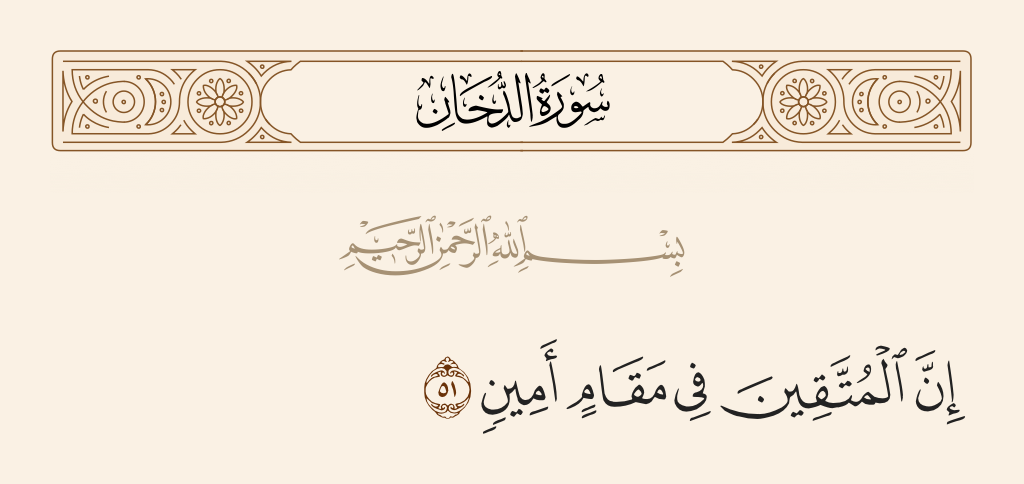 سُورَةُ الدُّخَانِ
بِسْمِ ٱللَّهِ ٱلرَّحْمَٰنِ ٱلرَّحِيمِ
إِنَّ ٱلْمُتَّقِينَ فِى مَقَامٍ أَمِينٍ ٥١